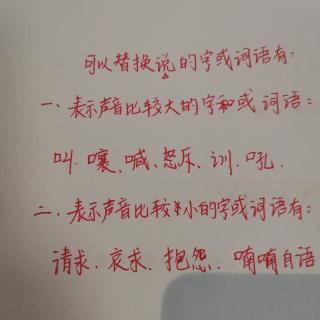 可以替换说的字或词语有:
一、表示声音比较大的字和或词语:
叫、嚷、喊、怒斥、训、吼.
二、表示声音比较小的字或词语有:
请求、哀求、抱怨、喃喃自语